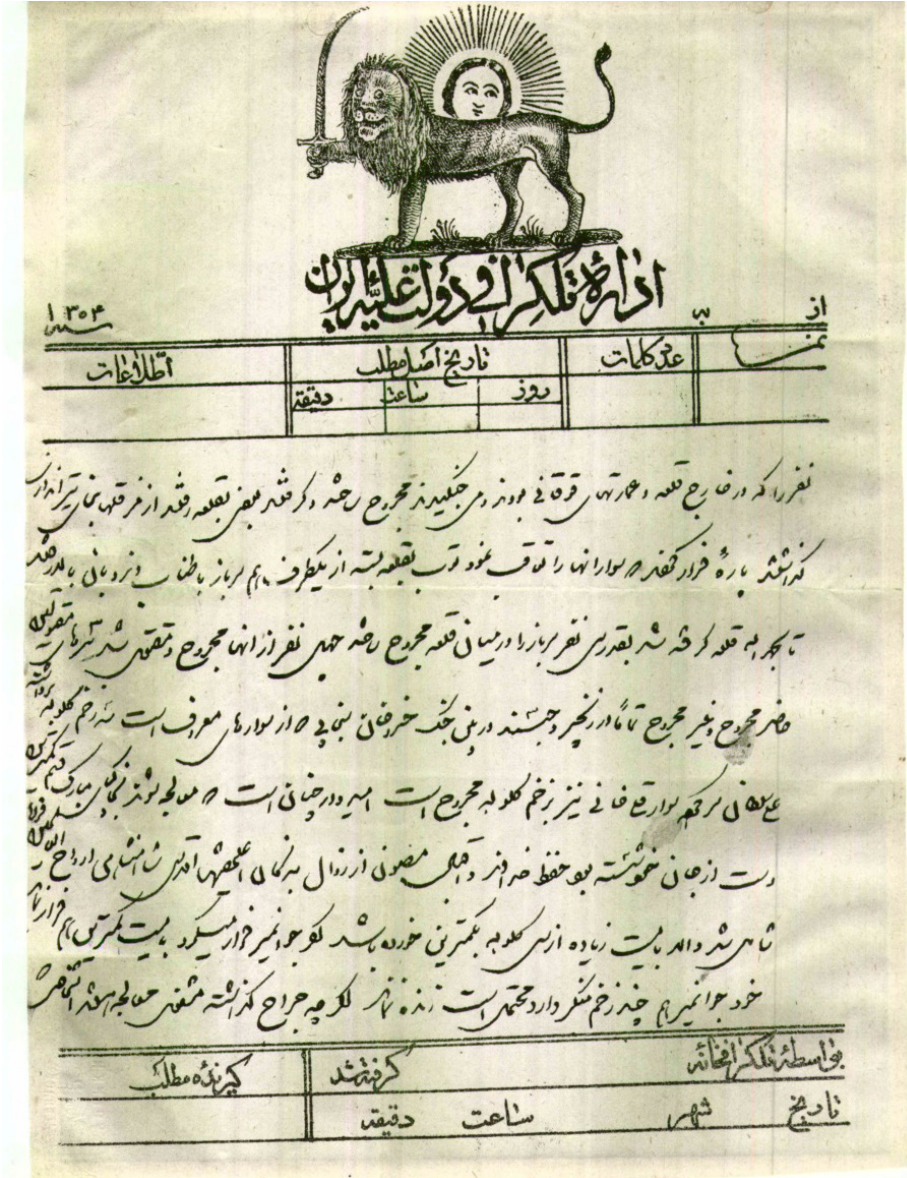 اداره تلگرافی دولت علیه ایران
از
ب
سنه ۱۳۰۴
نمره
عدد کلمات
تاریخ اصل مطلب
اطلاعات
روز
ساعت
دقیقه
نفر را که در خارج قلعه و عمارتهای فوقانی بودند و می جنگیدند مجروح ساخته و گرفتند بعضی بقلعه رفتند از مزقلها بنای تیراندازی
گذاشتند پاره فرار کردند سوار آنها را تعاقب نمود توپ بقلعه بسته از یکطرف هم سرباز با طناب و نردبان بالا رفتند
تا بحمد الله قلعه گرفته شد بقدر سی نفر سرباز را در میان قلعه مجروح ساخته چهل نفر از آنها مجروح و مقتول شد سرهای مقتولین
حاضر مجروح و غیر مجروح تماماً در زنجیر و حبسند در این جنگ خسروخان از سوارهای معروف است سه زخم گلوله برداشته
سلطان سرکرده سوار نیز بزخم گلوله مجروح است امیدوار چنان است معالجه شوند بخاکپای مبارک قسم کمترین
دست از جان خود شسته بود حفظ خداوند و اقبال مصون از زوال بندگان اعلیحضرت اقدس شاهنشاهی ارواح
شامل شد و الا بایست زیاده از سی گلوله بکمترین خورده باشد اگر جوانمیر فرار میکرد بایست کمترین هم فرار نماید
خود جوانمیر هم چند زخم منکر دارد محتمل است زنده نماند اگر چه جراح گذاشته مشغول معالجه هستند
بواسطه تلگرافخانه
گرفته شد
گیرنده مطلب
تاریخ
شهر
ساعت
دقیقه